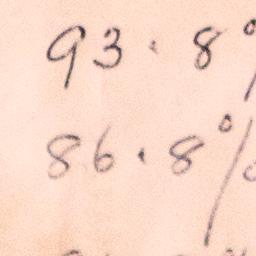 93.8%
86.8%